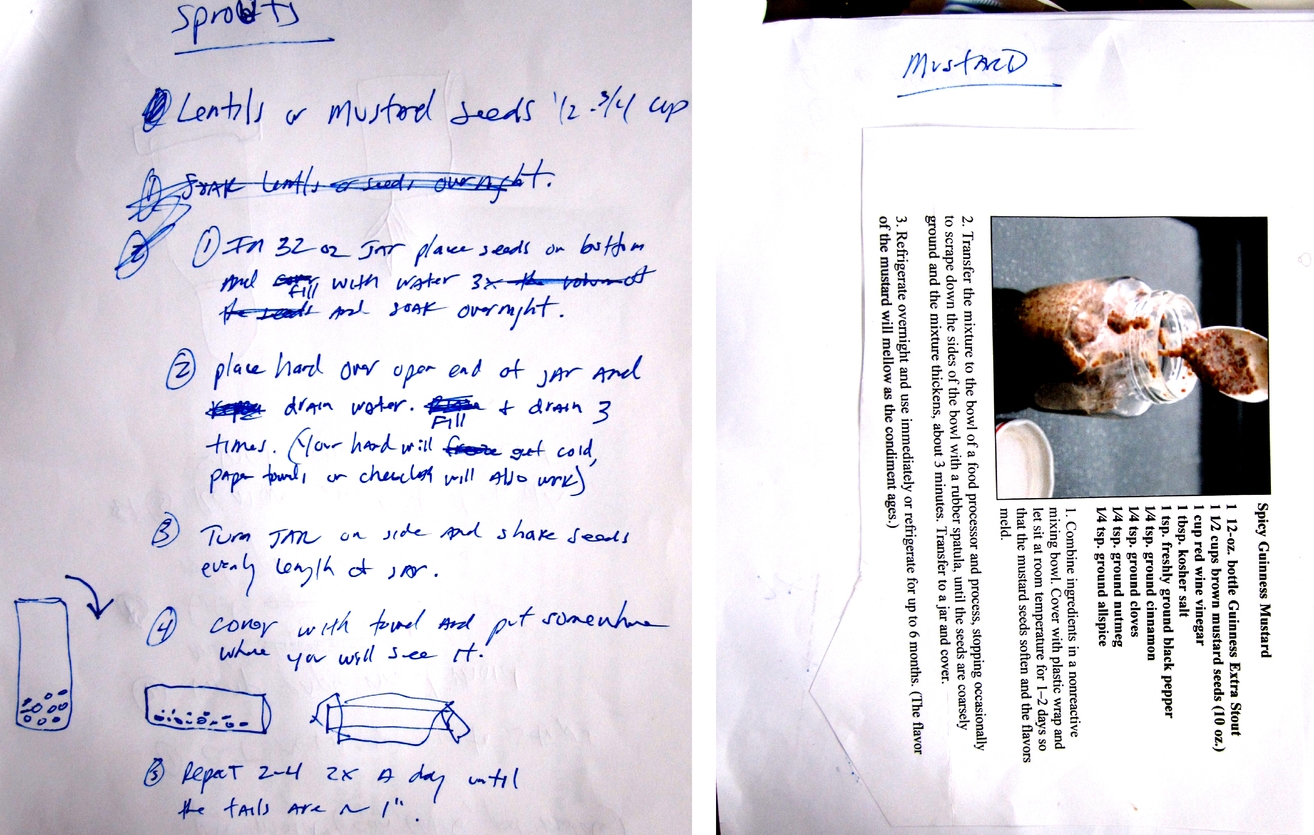 Sprouts
Lentils or Mustard Seeds 1/2 - 3/4 cup
① Soak lentils or seeds overnight.
② ① In 32 oz JAR place seeds on bottom
And cover fill with water 3x the volume of
the seeds And soak overnight.
② place hand over open end of JAr And
drain water. Fill + drain 3
times. (Your hand will freeze get cold,
paper towels or cheesecloth will also work)
③ Turn JAR on side And shake seeds
evenly length of JAr.
④ cover with towel And put somewhere
where you will see it.
⑤ Repeat 2-4 2x A day until
the tails Are ~ 1".
MustARD
Spicy Guinness Mustard
1 12-oz. bottle Guinness Extra Stout
1 1/2 cups brown mustard seeds (10 oz.)
1 cup red wine vinegar
1 tbsp. kosher salt
1 tsp. freshly ground black pepper
1/4 tsp. ground cinnamon
1/4 tsp. ground cloves
1/4 tsp. ground nutmeg
1/4 tsp. ground allspice
1. Combine ingredients in a nonreactive
mixing bowl. Cover with plastic wrap and
let sit at room temperature for 1–2 days so
that the mustard seeds soften and the flavors
meld.
2. Transfer the mixture to the bowl of a food processor and process, stopping occasionally
to scrape down the sides of the bowl with a rubber spatula, until the seeds are coarsely
ground and the mixture thickens, about 3 minutes. Transfer to a jar and cover.
3. Refrigerate overnight and use immediately or refrigerate for up to 6 months. (The flavor
of the mustard will mellow as the condiment ages.)